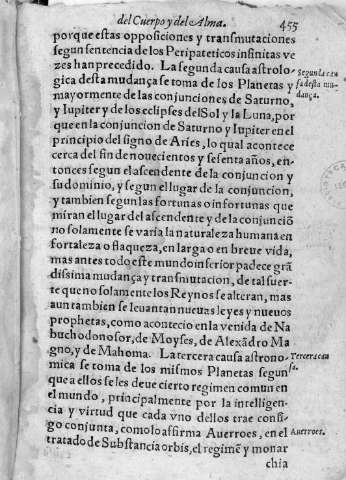 del Cuerpo y del Alma. 455
porque estas opposiciones y transmutaciones
segun sentencia de los Peripateticos infinitas ve
zes han precedido. La segunda causa astrolo-
gica desta mudança se toma de los Planetas y
mayormente de las conjunciones de Saturno,
y Iupiter y de los eclipses del Sol y la Luna, por
que en la conjuncion de Saturno y Iupiter en el
principio del signo de Aries, lo qual acontece
cerca del fin de nouecientos y sesenta años, en-
tonces segun el ascendente de la conjuncion y
su dominio, y segun el lugar de la conjuncion,
y tambien segun las fortunas o infortunas que
miran el lugar del ascendente y de la conjunciõ
no solamente se varia la naturaleza humana en
fortaleza o flaqueza, en larga o en breue vida,
mas antes todo este mundo inferior padece grã
dissima mudança y transmutacion, de tal suer-
te que no solamente los Reynos se alteran, mas
aun tambien se leuantan nueuas leyes y nueuos
prophetas, como acontecio en la venida de Na
buchodonosor, de Moyses, de Alexãdro Ma
gno, y de Mahoma. La tercera causa astrono-
mica se toma de los mismos Planetas segun
que a ellos se les deue cierto regimen comun en
el mundo, principalmente por la intelligen-
cia y virtud que cada vno dellos trae consi-
go conjunta, como lo affirma Auerroes, en el
tratado de Substancia orbis, el regimẽ y monar
chia
Segunda cau
sa desta mu-
dança.
Tercera cau
sa.
Auerroes.